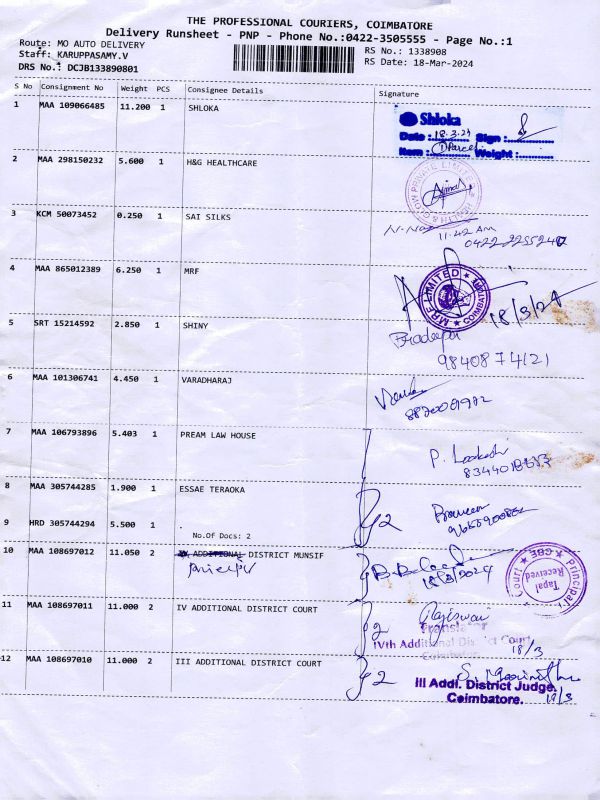 THE PROFESSIONAL COURIERS, COIMBATORE
Delivery Runsheet - PNP - Phone No.:0422-3505555 - Page No.:1
Route: MO AUTO DELIVERY
Staff: KARUPPASAMY.V
DRS No.: DCJB133890801
RS No.: 1338908
RS Date: 18-Mar-2024
S No Consignment No Weight PCS Consignee Details Signature
1 MAA 109066485 11.200 1 SHLOKA
Shloka
Date : 18.3.24 Sign :
Item : Weight:
2 MAA 298150232 5.600 1 H&G HEALTHCARE
3 KCM 50073452 0.250 1 SAI SILKS
11.42 Am
4 MAA 865012389 6.250 1 MRF
MRF LIMITED
COIMBATORE
18/3/24
5 SRT 15214592 2.850 1 SHINY
Pradeepa
9840874121
6 MAA 101306741 4.450 1 VARADHARAJ
7 MAA 106793896 5.403 1 PREAM LAW HOUSE
8 MAA 305744285 1.900 1 ESSAE TERAOKA
9 HRD 305744294 5.500 1 .
No.Of Docs: 2
10 MAA 108697012 11.050 2 ADDITIONAL DISTRICT MUNSIF
18/3/2024
Principal
Court
CBE
Tapal
Received
11 MAA 108697011 11.000 2 IV ADDITIONAL DISTRICT COURT
Translator
IVth Additional District Court
Coimbatore
18/3
12 MAA 108697010 11.000 2 III ADDITIONAL DISTRICT COURT
III Addl. District Judge.
Coimbatore.